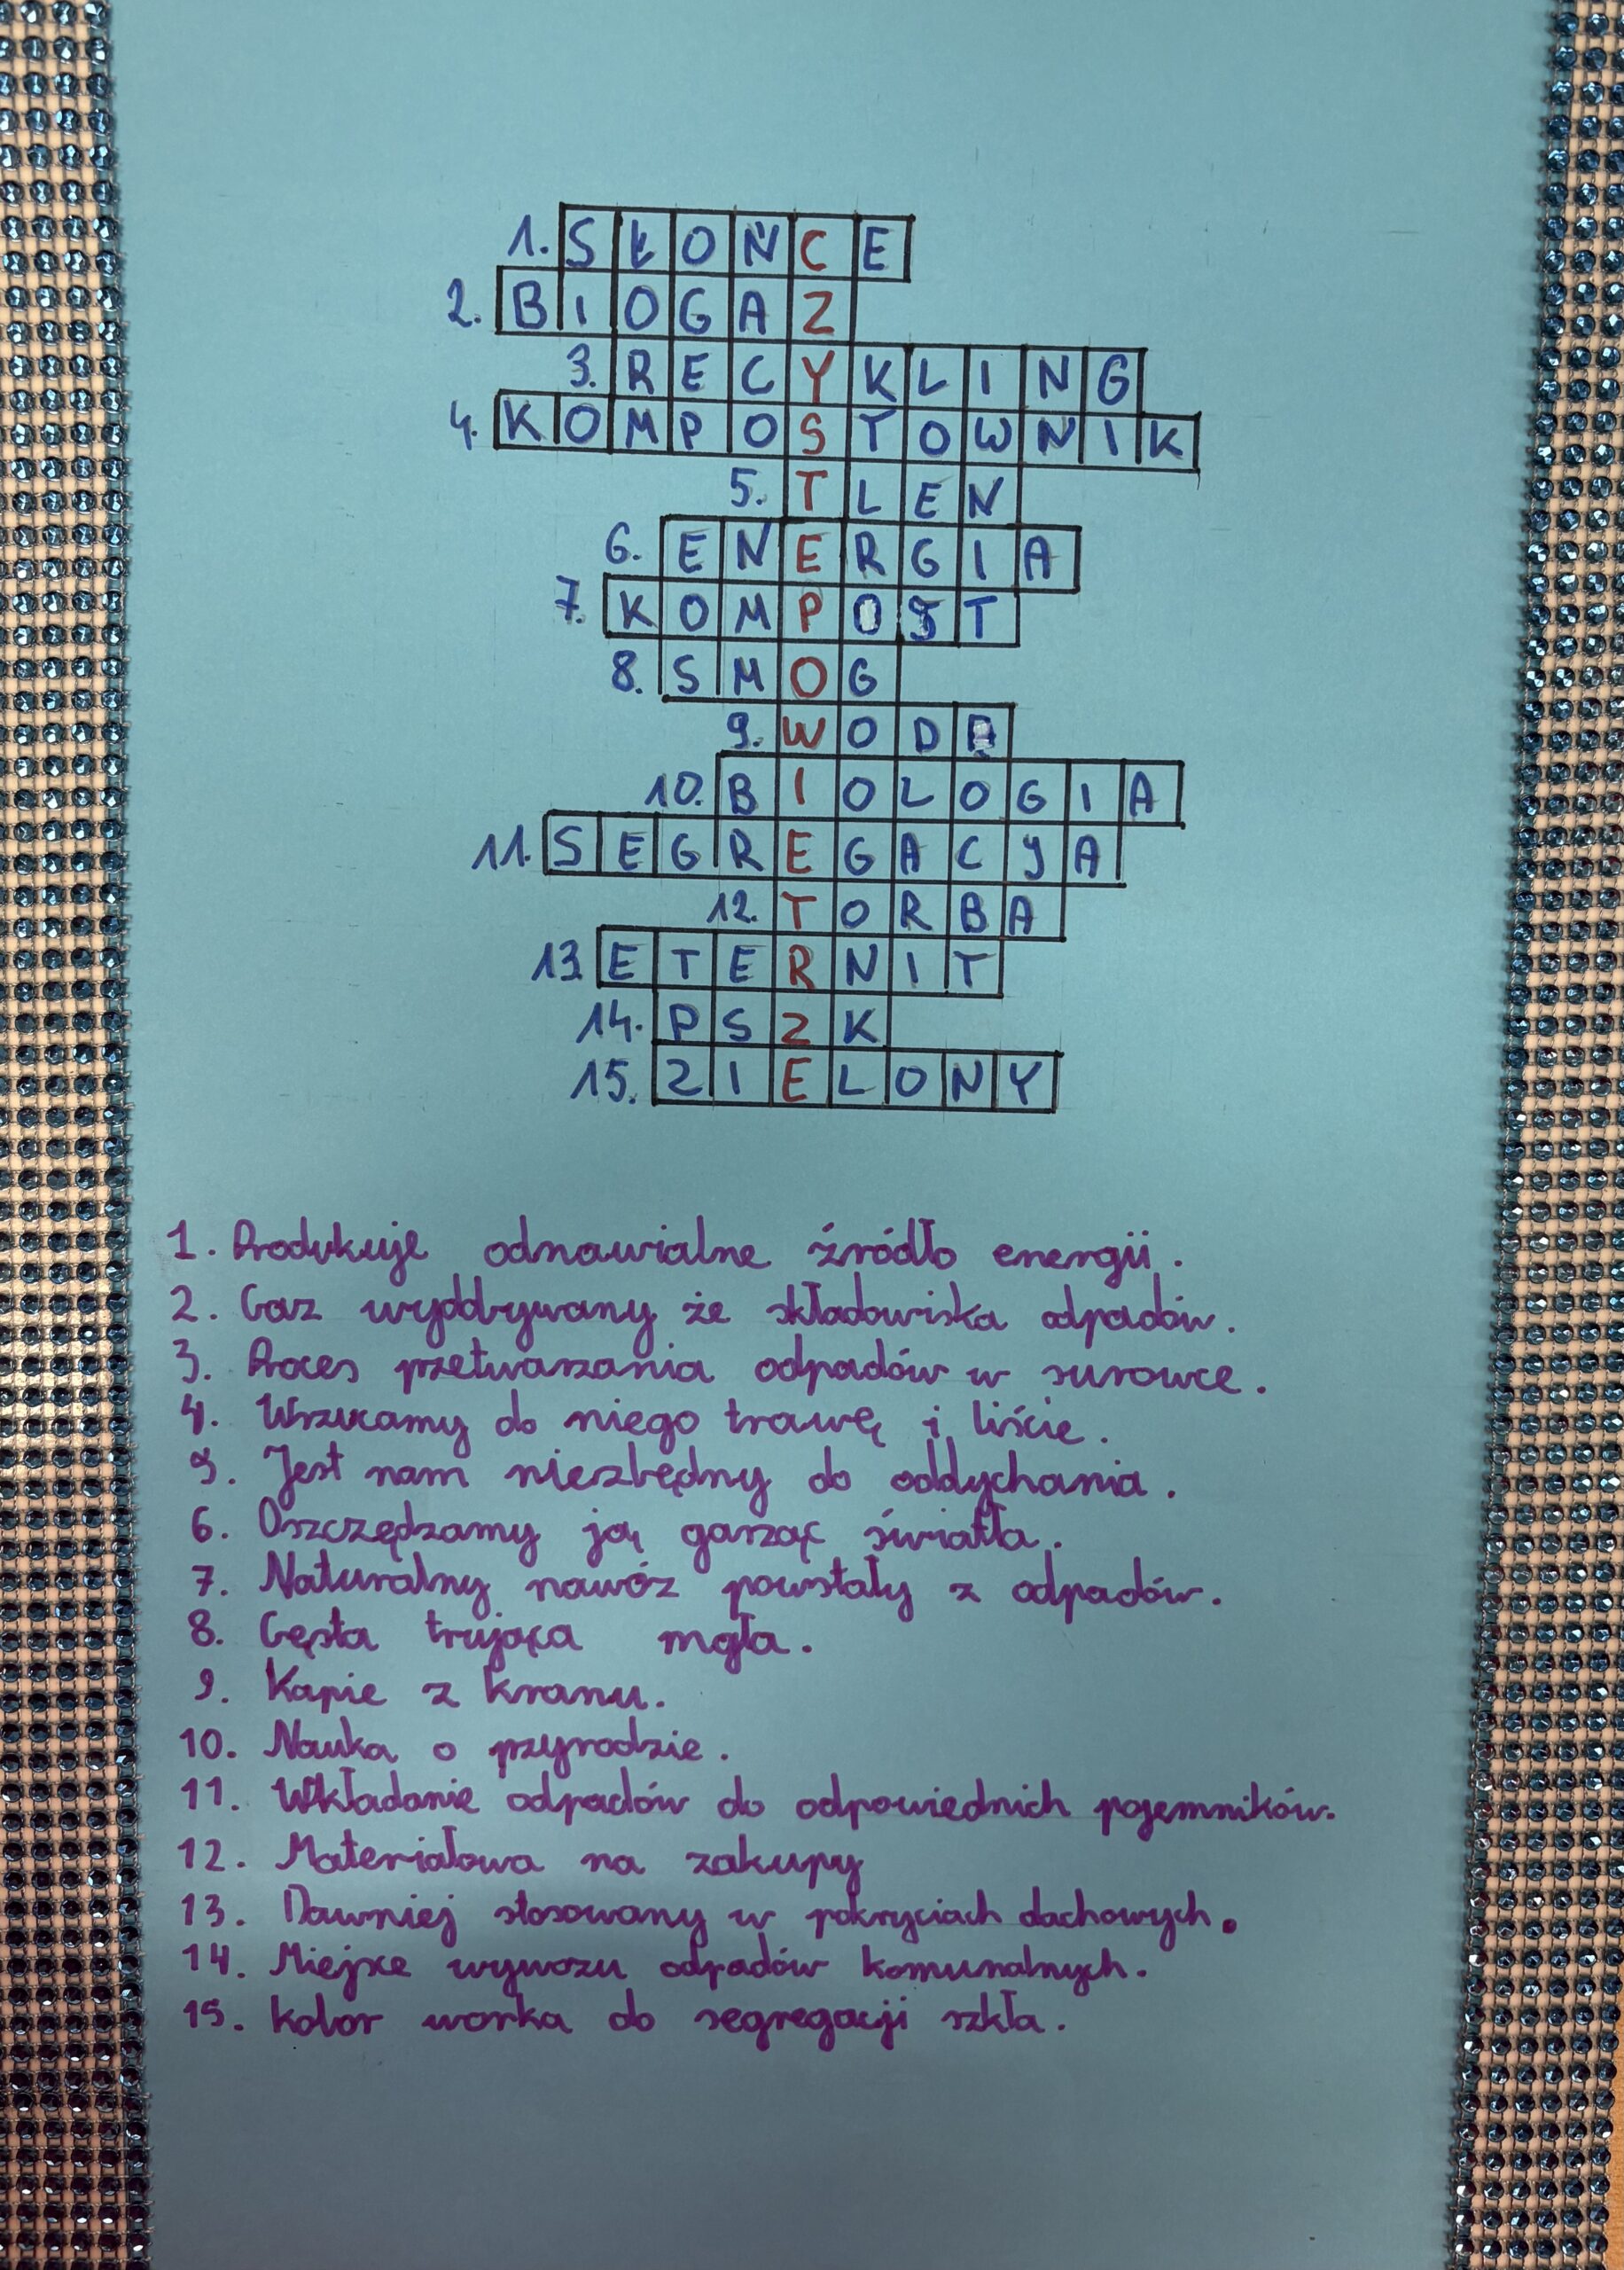 1. SŁOŃCE
2. BIOGAZ
3. RECYKLING
4. KOMPOSTOWNIK
5. TLEN
6. ENERGIA
7. KOMPOST
8. SMOG
9. WODA
10. BIOLOGIA
11. SEGREGACJA
12. TORBA
13. ETERNIT
14. PSZK
15. ZIELONY
1. Produkuje odnawialne źródło energii.
2. Gaz wydobywany że składowiska odpadów.
3. Proces przetwarzania odpadów w surowce.
4. Wrzucamy do niego trawę i liście.
5. Jest nam niezbędny do oddychania.
6. Oszczędzamy ją gasząc światła.
7. Naturalny nawóz powstały z odpadów.
8. Gęsta trująca mgła.
9. Kapie z kranu.
10. Nauka o przyrodzie.
11. Wkładanie odpadów do odpowiednich pojemników.
12. Materiałowa na zakupy
13. Dawniej stosowany w pokryciach dachowych.
14. Miejsce wywozu odpadów komunalnych.
15. Kolor worka do segregacji szkła.